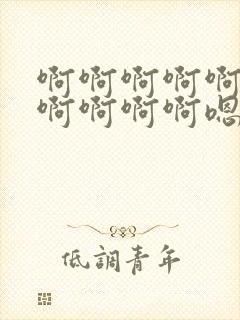 啊啊啊啊啊
啊啊啊啊嗯
低調青年